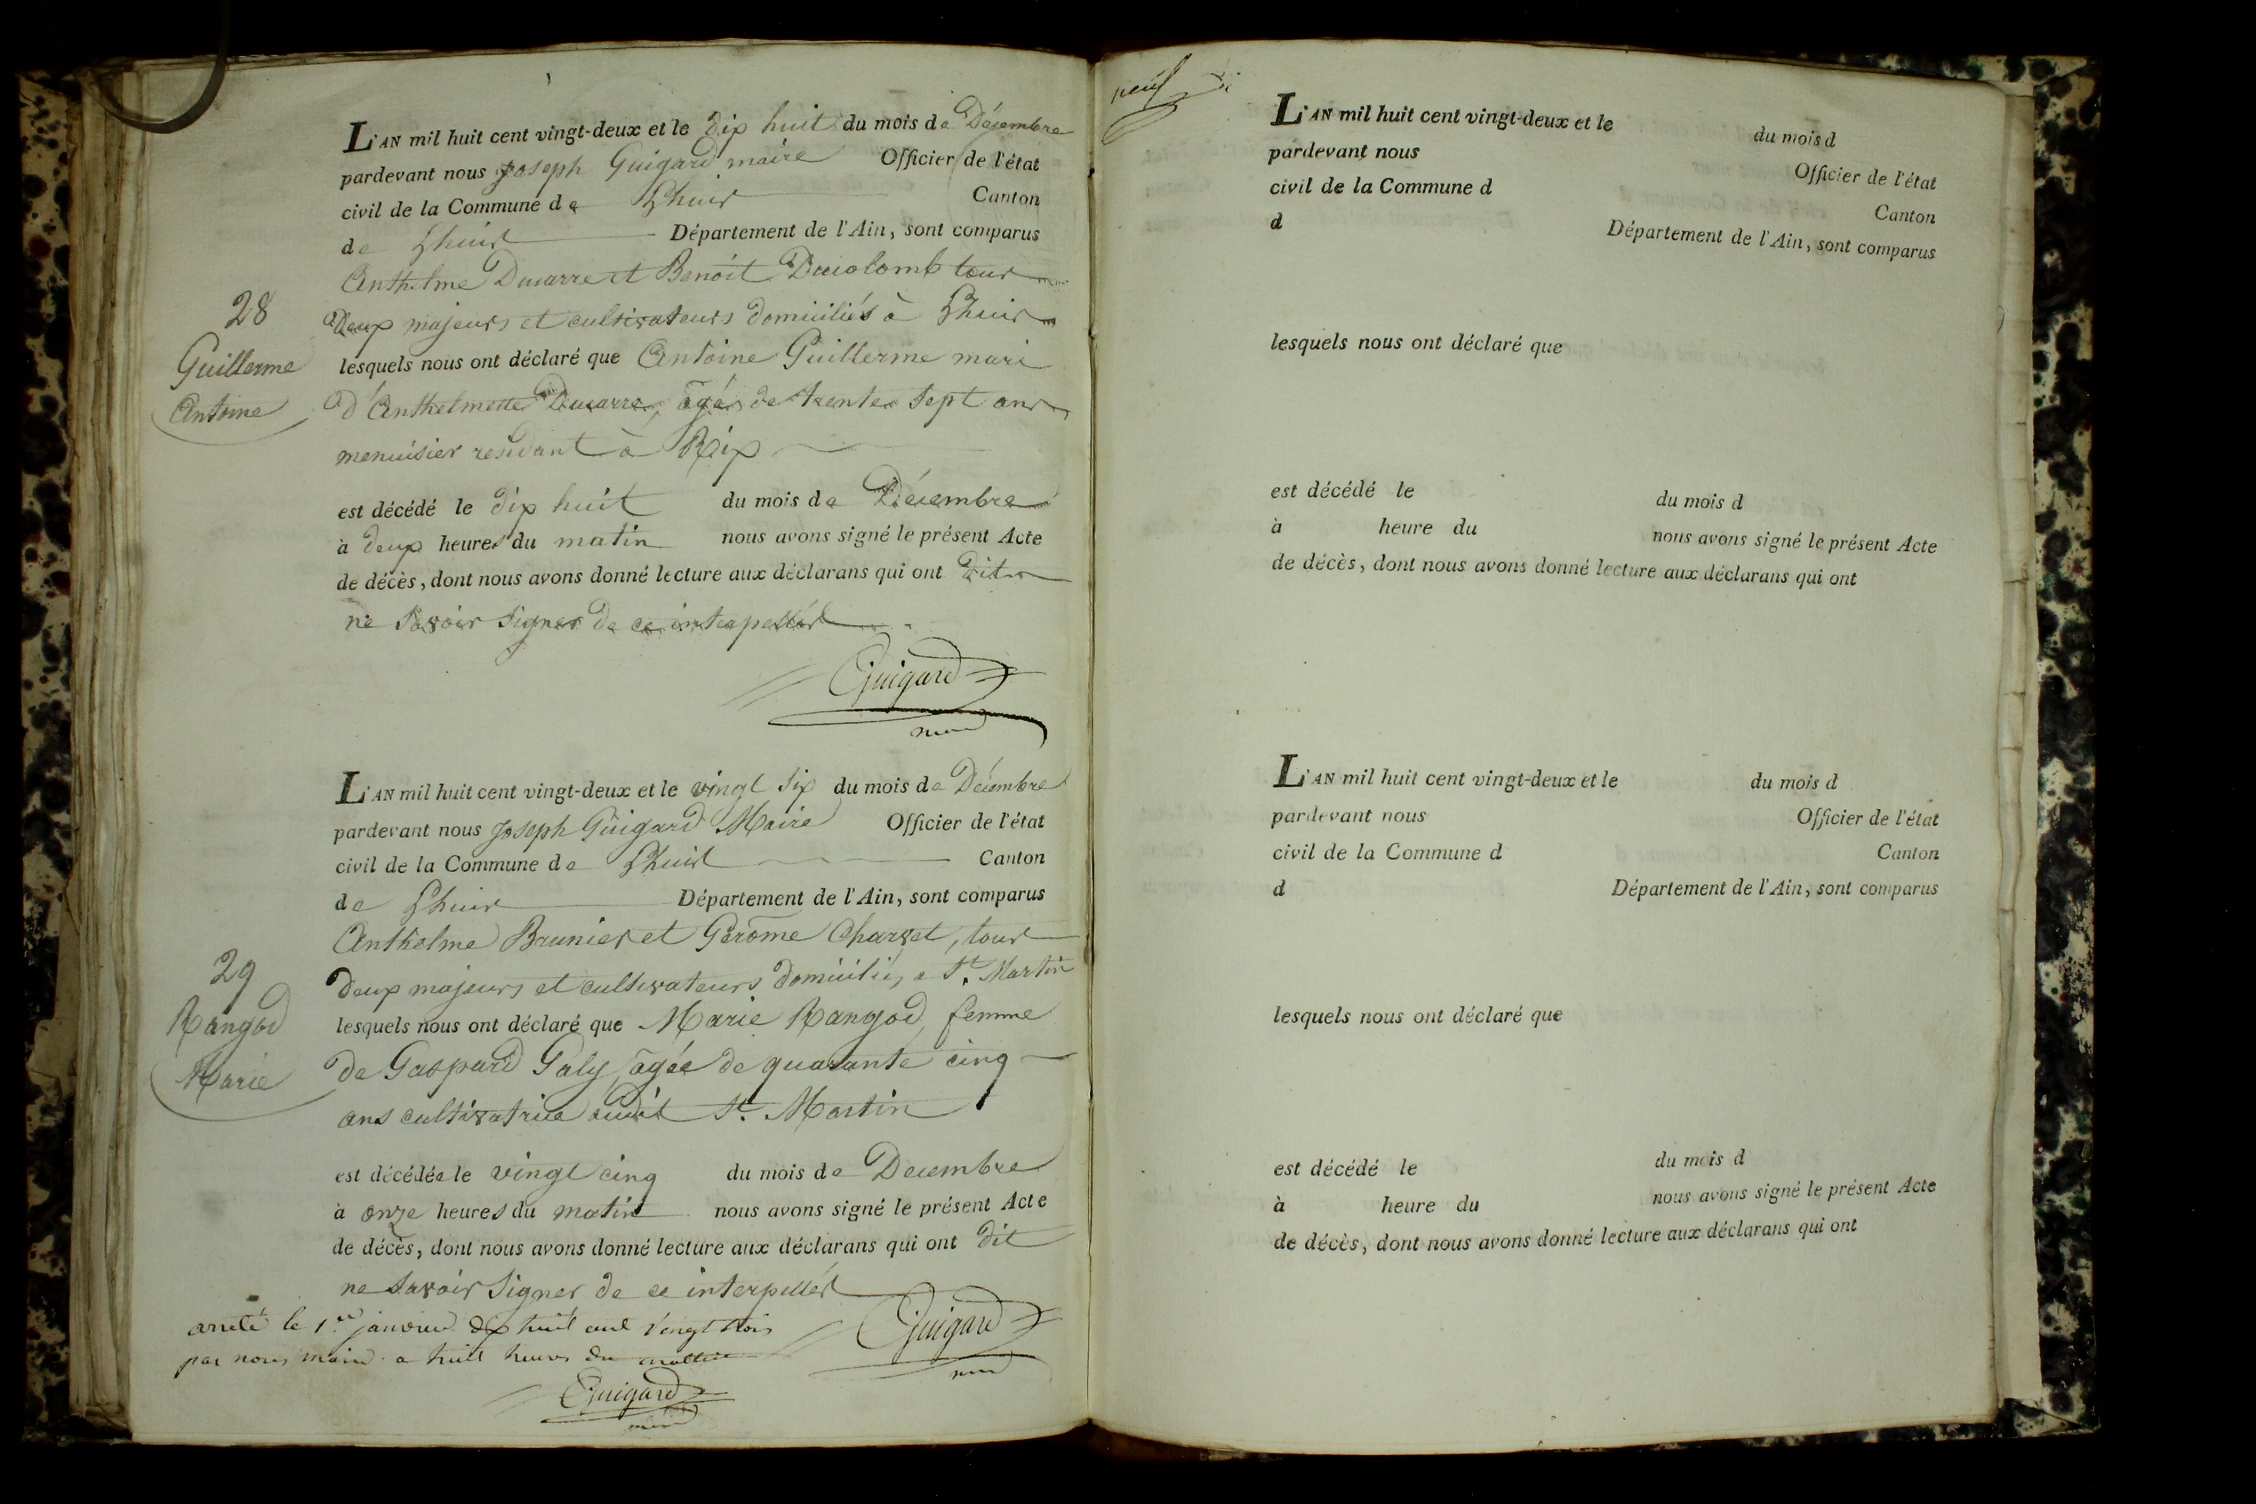 L'AN mil huit cent vingt-deux et le dix huit du mois de Décembre
pardevant nous Joseph Guigard maire Officier de l'état
civil de la Commune de Lhuis Canton
de Lhuis Département de l'Ain, sont comparus
Anthelme Ducarre et Benoît Ducolomb tous
28
Deux majeurs et cultivateurs domiciliés à Lhuis
Guillerme
lesquels nous ont déclaré que Antoine Guillerme mari
Antoine
d'Anthelmette Ducarre, âgé de trente sept ans
menuisier residant à Rix
est décédé le dix huit du mois de Décembre
à deux heures du matin nous avons signé le présent Acte
de décès, dont nous avons donné lecture aux déclarans qui ont dit
ne Savoir Signer de ce interpellés
Guigard
L'AN mil huit cent vingt-deux et le vingt Six du mois de Décembre
pardevant nous Joseph Guigard Maire Officier de l'état
civil de la Commune de Lhuis Canton
de Lhuis Département de l'Ain, sont comparus
Anthelme Brunier et Gérome Charvet, tous
29
Deux majeurs et cultivateurs domiciliés a St. Martin
Rangod
lesquels nous ont déclaré que Marie Rangod, femme
Marie
de Gaspard Galy, âgée de quarante cinq
ans cultivatrice audit St. Martin
est décédée le vingt cinq du mois de Decembre
à onze heures du matin nous avons signé le présent Acte
de décès, dont nous avons donné lecture aux déclarans qui ont dit
ne Savoir Signer de ce interpellés
Guigard
arreté le 1.er janvier dix huit cent vingt trois
par nous maire a huit heures du mattin
Guigard
L'AN mil huit cent vingt-deux et le du mois d
pardevant nous Officier de l'état
civil de la Commune d Canton
d Département de l'Ain, sont comparus
lesquels nous ont déclaré que
est décédé le du mois d
à heure du nous avons signé le présent Acte
de décès, dont nous avons donné lecture aux déclarans qui ont
L'AN mil huit cent vingt-deux et le du mois d
pardevant nous Officier de l'état
civil de la Commune d Canton
d Département de l'Ain, sont comparus
lesquels nous ont déclaré que
est décédé le du mois d
à heure du nous avons signé le présent Acte
de décès, dont nous avons donné lecture aux déclarans qui ont